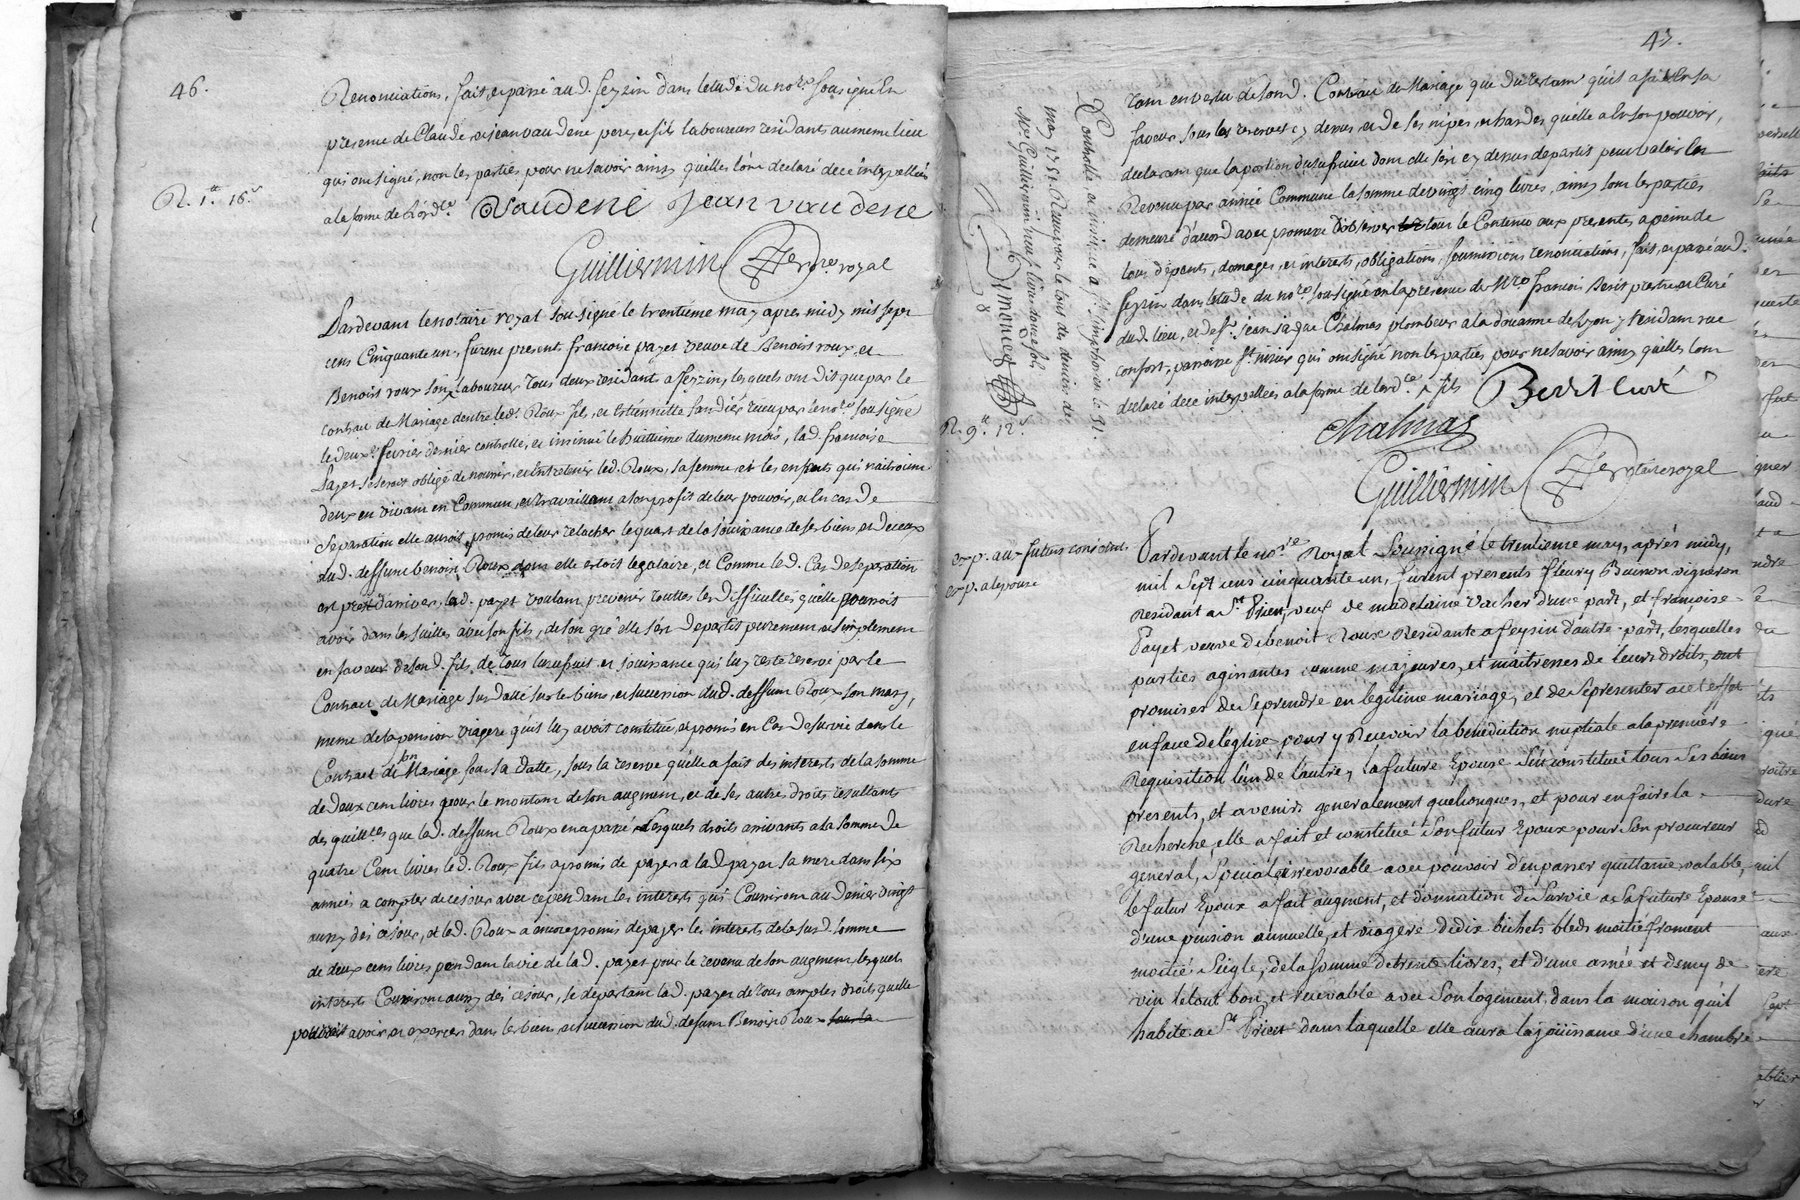 46.
Renonciations, fait, et passé aud. feyzin dans letude du no.re sousigné En
presence de Claude et jean vaudene pere, et fils laboureurs residants au meme lieu
qui ont signé, non les parties pour ne savoir ainsy quelles l'ont declaré de ce interpellées
a la forme de l'ord.ce Vaudene jean vaudene
R. 1.tt 16.s
Guilliermin no.re royal
Pardevant le notaire royal sousigné le trentième may apres midy mil sept
cent Cinquante un, furent presents francoise payet veuve de Benoist roux, et
Benoist roux son, laboureur tous deux residant a feyzin, lesquels ont dit que par le
contract de Mariage d'entre led. Roux fils, et Estiennette reçu par le no.re sousigné
le deux.e fevrier dernier controllé, et insinué le huitième du meme mois, lad. francoise
payet se seroit obligé de nourrir, et entretenir led. Roux, sa femme, et les enfents qui naitroient
deux en vivant en Commun, et travaillant a son profit de leur pouvoir, et En cas de
Separation elle auroit promis de leur relacher le quart de la jouissance de ses biens, et de ceux
dud. deffunt benoist Roux dont elle estoit legataire, et Comme led. Cas de separation
est prest d'arriver, lad. payet voulant prevenir touttes les difficultés quelle pourroit
avoir dans les suittes avec son fils, de son gré elle s'est departit purement et simplement
en faveur de sond. fils de tous lusufruit et jouissance qui luy reste reservé par le
Contract de Mariage sus datté sur le biens, et succession dud. deffunt Roux son mary,
meme de la pension viagere qu'il luy avoit constitué, et promis en Cas de survie dans le
Contract de son Mariage sous sa datte, sous la reserve quelle a fait des interests de la somme
de deux cent livres pour le montant de son augment, et de ses autres droits resultants
des quitt.ces que lad. deffunt Roux en a passé, Lesquels droits arrivants a la somme de
quatre Cent livres led. Roux fils a promis de payer a lad payet sa mere dans six
années a compter de ce jour avec cependant les interests qui Courriront au denier vingt
aussy dès ce jour, et led. Roux a encore promis de payer les interests de la susd. somme
de deux cens livres pendant la vie de lad. payet pour le revenu de son augment, lesquels
interests Courriront aussy dès ce jour, se departant lad. payet de tous amples droits quelle
pourroit avoir, et exercer dans le biens, et succession dud. defunt Benoist Roux tous la
47.
tant en vertu de sond. Contract de Mariage que du testam.t qu'il a fait En sa
faveur, sous les reserves cy dessus, et de ses nipes, et hardes qu'elle a En son pouvoir,
declarant que la portion dusufruit dont elle s'est cy dessus departit peut valoir En
Revenu par année Commune la somme de vingt cinq livres, ainsy sont les parties
demeuré d'accord avec promesse d'observer tout le Contenu aux presentes a peine de
tous depents, domages, et interests, obligations, soumissions renonciations, fait, et passé aud.
feyzin dans letude du no.re sousigné en la presence de Mre francois Berit pretre et Curé
dud. lieu, et de S.r jean jaque Chalmas plombeur a la douanne de Lyon y residant rue
confort, paroisse S.t nisier qui ont signé non les parties pour ne savoir ainsy quelles l'ont
declaré de ce interpellées a la forme de l'ord.ce fils Berit curé
chalmas
Guilliermin notaire royal
Controllé et insinué a S.t simphorien le 31.
may 1751. Receu
M.e Guilliermin
Simond
R. 9.tt 12.s
exp. au futurs
exp. a lepouse
Pardevant le no.re Royal Sousigné le trentieme may, après midy,
mil Sept cens cinquante un, furent presents fleury Buisson vigneron
Residant a S.t Priest, veuf de madelaine vacher d'une part, et francoise
Payet veuve de benoit Roux Residante a feysin d'autre part, lesquelles
parties agissantes comme majeures, et maitresses de leurs droits, ont
promises de Seprendre en legitime mariage, et de Sepresenter a cet effet
en face de l'eglise pour y Recevoir la benediction nuptiale a la premiere
Requisition l'un de l'autre, la future Epouse S'est constitué tous Ses biens
presents, et avenir generalement quelconques, et pour en faire la
Recherche, elle a fait et constitué Son futur Epoux pour Son procureur
general, Special et irrevocable avec pouvoir d'en passer quittance valable,
le futur Epoux a fait augment, et donnation de Survie a la future Epouse
d'une pension annuelle, et viagere de dix bichets bleds moitié froment
moitié Seigle, de la somme de trente livres, et d'une asnée et demy de
vin le tout bon, et recevable avec Son logement dans la maison qu'il
habite a S.t Priest dans laquelle elle aura la jouissance d'une chambre